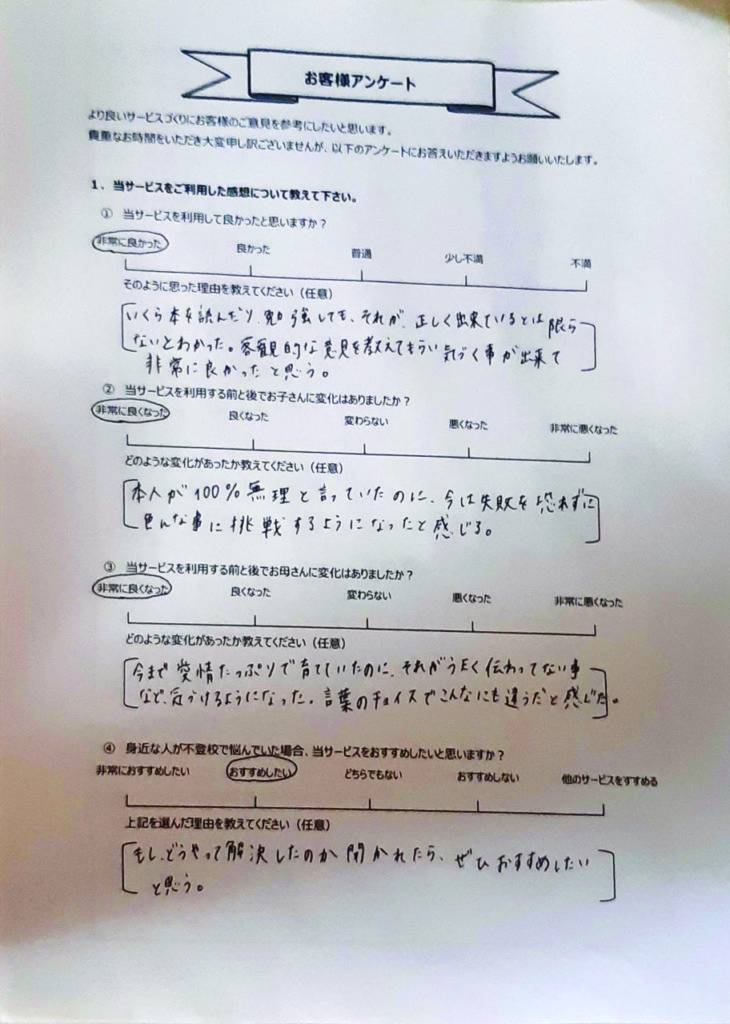 お客様アンケート
より良いサービスづくりにお客様のご意見を参考にしたいと思います。
貴重なお時間をいただき大変申し訳ございませんが、以下のアンケートにお答えいただきますようお願いいたします。
1．当サービスをご利用した感想について教えて下さい。
① 当サービスを利用して良かったと思いますか？
非常に良かった 良かった 普通 少し不満 不満
そのように思った理由を教えてください（任意）
いくら本を読んだり、勉強しても、それが、正しく出来ているとは限ら
ないとわかった。客観的な意見を教えてもらい気づく事が出来て
非常に良かったと思う。
② 当サービスを利用する前と後でお子さんに変化はありましたか？
非常に良くなった 良くなった 変わらない 悪くなった 非常に悪くなった
どのような変化があったか教えてください（任意）
本人が100%無理と言っていたのに、今は失敗を恐れずに
色んな事に挑戦するようになったと感じる。
③ 当サービスを利用する前と後でお母さんに変化はありましたか？
非常に良くなった 良くなった 変わらない 悪くなった 非常に悪くなった
どのような変化があったか教えてください（任意）
今まで愛情たっぷりで育てていたのに、それがうまく伝わってない事
など、気づけるようになった。言葉のチョイスでこんなにも違うだと感じた。
④ 身近な人が不登校で悩んでいた場合、当サービスをおすすめしたいと思いますか？
非常におすすめしたい おすすめしたい どちらでもない おすすめしない 他のサービスをすすめる
上記を選んだ理由を教えてください（任意）
もし、どうやって解決したのか聞かれたら、ぜひおすすめしたい
と思う。